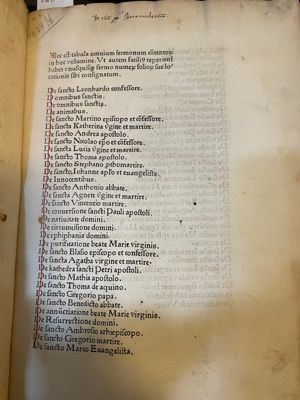 Hec est tabula omnium sermonum cōtentoꝝ
in hoc volumine. Ut autem faciliꝰ reperiant̄
habet vnusquisqꝫ sermo numeꝝ folioꝝ suc lo/
cationis sibi consignatum.
De sancto Leonardo confessore.
De omnibus sanctis.
De omnibus sanctis.
De animabus.
De sancto Martino episcopo et cōfessore.
De sancta Katherina v̄gine et martire.
De sancto Andrea apostolo.
De sancto Nicolao ep̄o et cōfessore.
De sancta Lucia v̄gine et martire.
De sancto Thoma apostolo.
De sancto Stephano p̱thomartire.
De sancto Iohanne ap̄lo et euangelista.
De Innocentibus.
De sancto Anthonio abbate.
De sancta Agnete v̄gine et martire.
De sancto Vincentio martire.
De conuersione sancti Pauli apostoli.
De natiuitate domini.
De circumsisione domini.
De ephiphania domini.
De purificatione beate Marie virginis.
De sancto Blasio episcopo et confessore.
De sancta Agatha virgine et martire.
De kathedra sancti Petri apostoli.
De sancto Mathia apostolo.
De sancto Thoma de aquino.
De sancto Gregorio papa.
De sancto Benedicto abbate.
De annūctiatione beate Marie virginis.
De Resurrectione domini.
De sancto Ambrosio arhiepiscopo.
De sancto Gregorio martire.
De sancto Marco Euangelista.